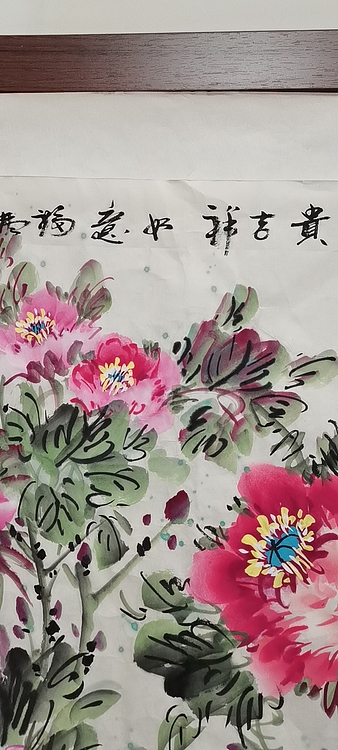 貴吉祥如意福